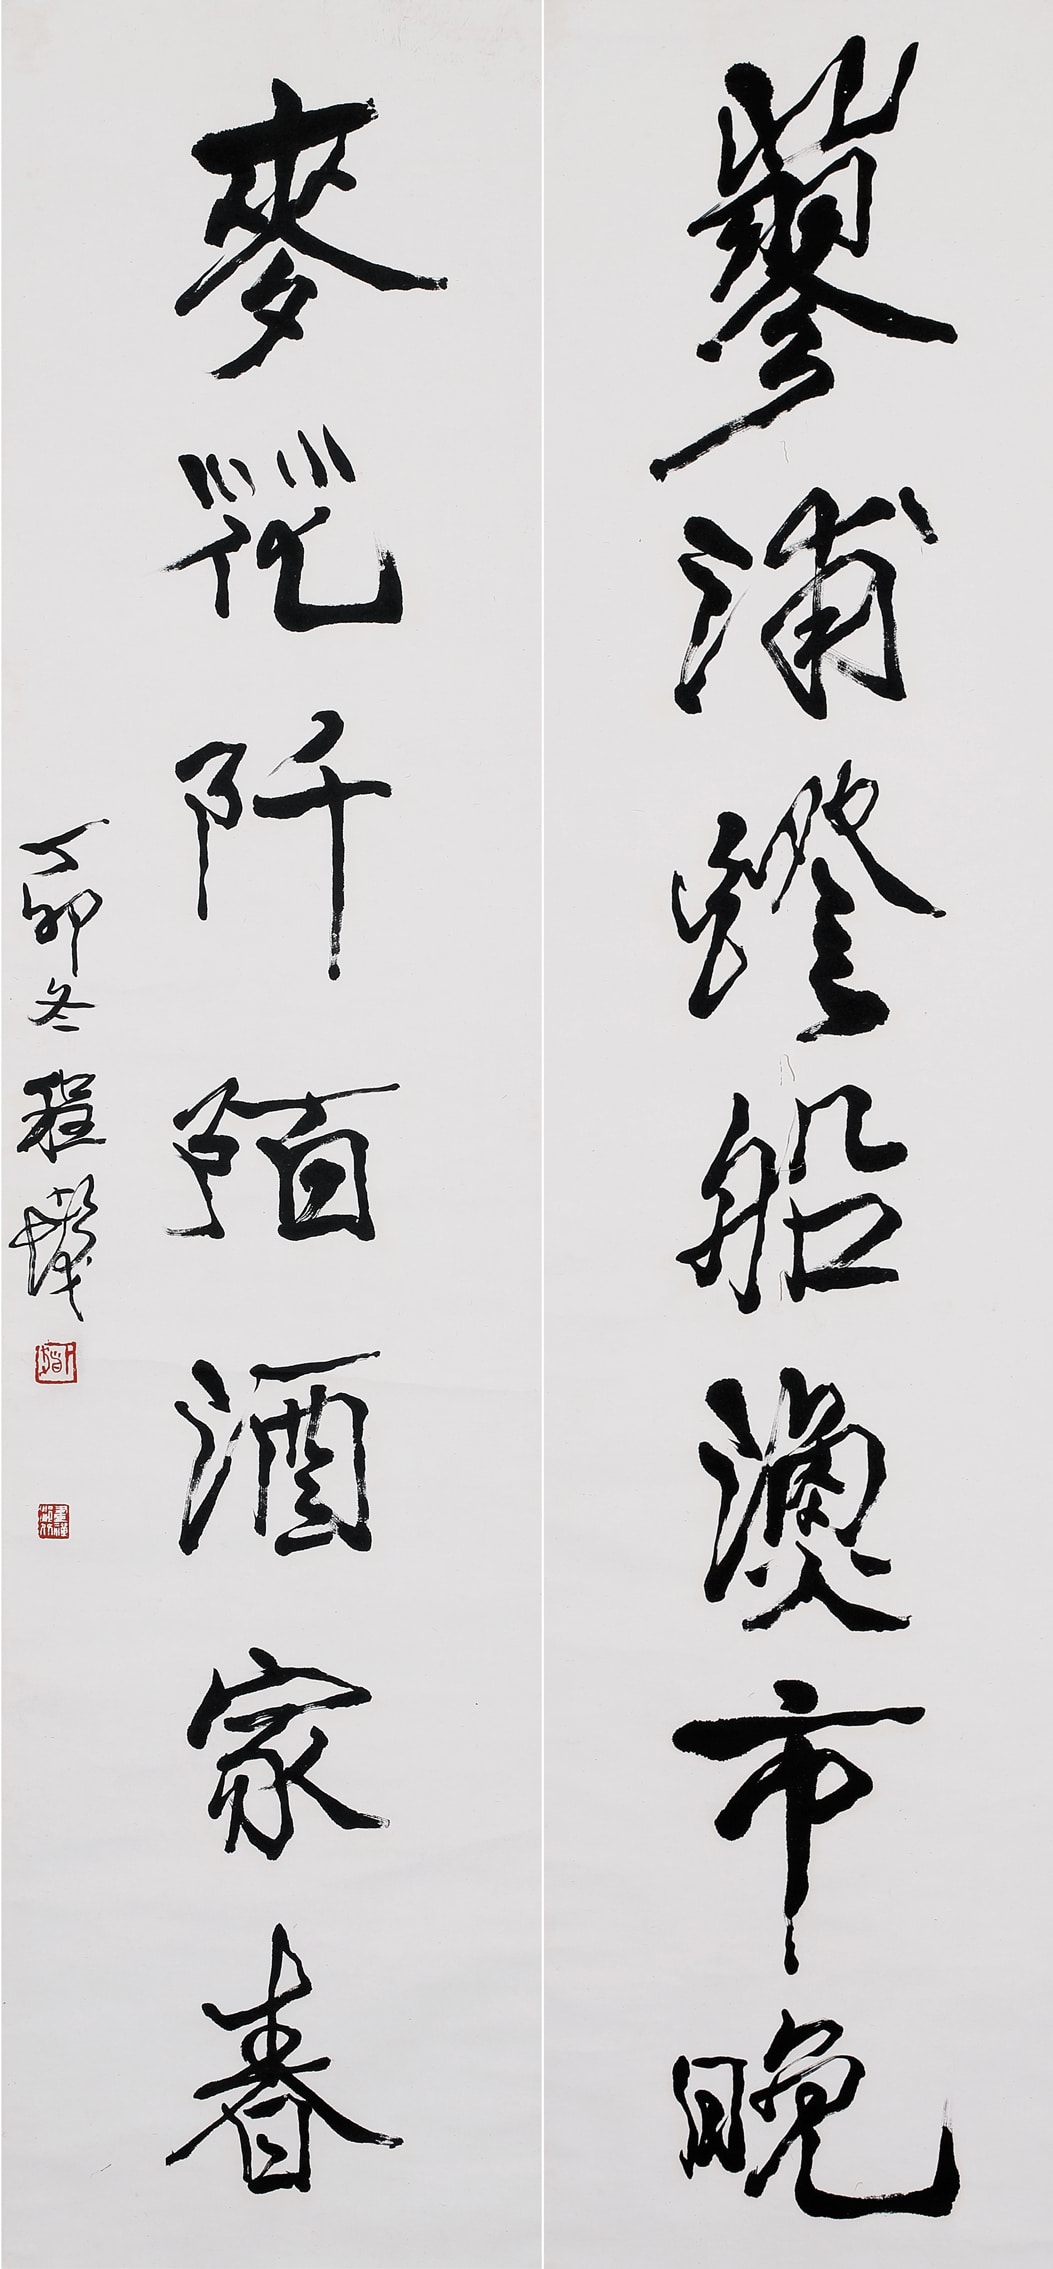 蓼浦燈船漁市晚
麥花阡陌酒家春
丁卯冬程十髮